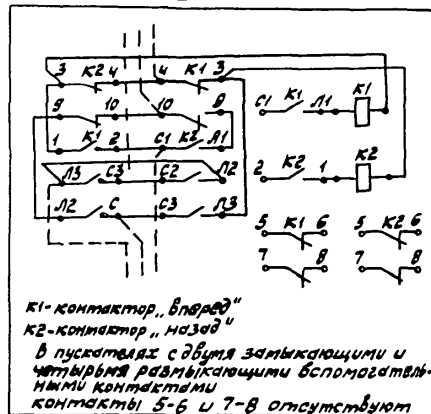 3 К2 4 4 К1 3
9 10 10 9
1 К1 2 С1 К2 Л1
Л3 С3 С2 Л2
Л2 С С3 Л3
С1 К1 Л1 К1
2 К2 1 К2
5 К1 6 5 К2 6
7 8 7 8
К1-контактор „вперед"
К2-контактор „назад"
В пускателях с двумя замыкающими и
четырьмя размыкающими вспомогатель-
ными контактами
контакты 5-6 и 7-8 отсутствуют